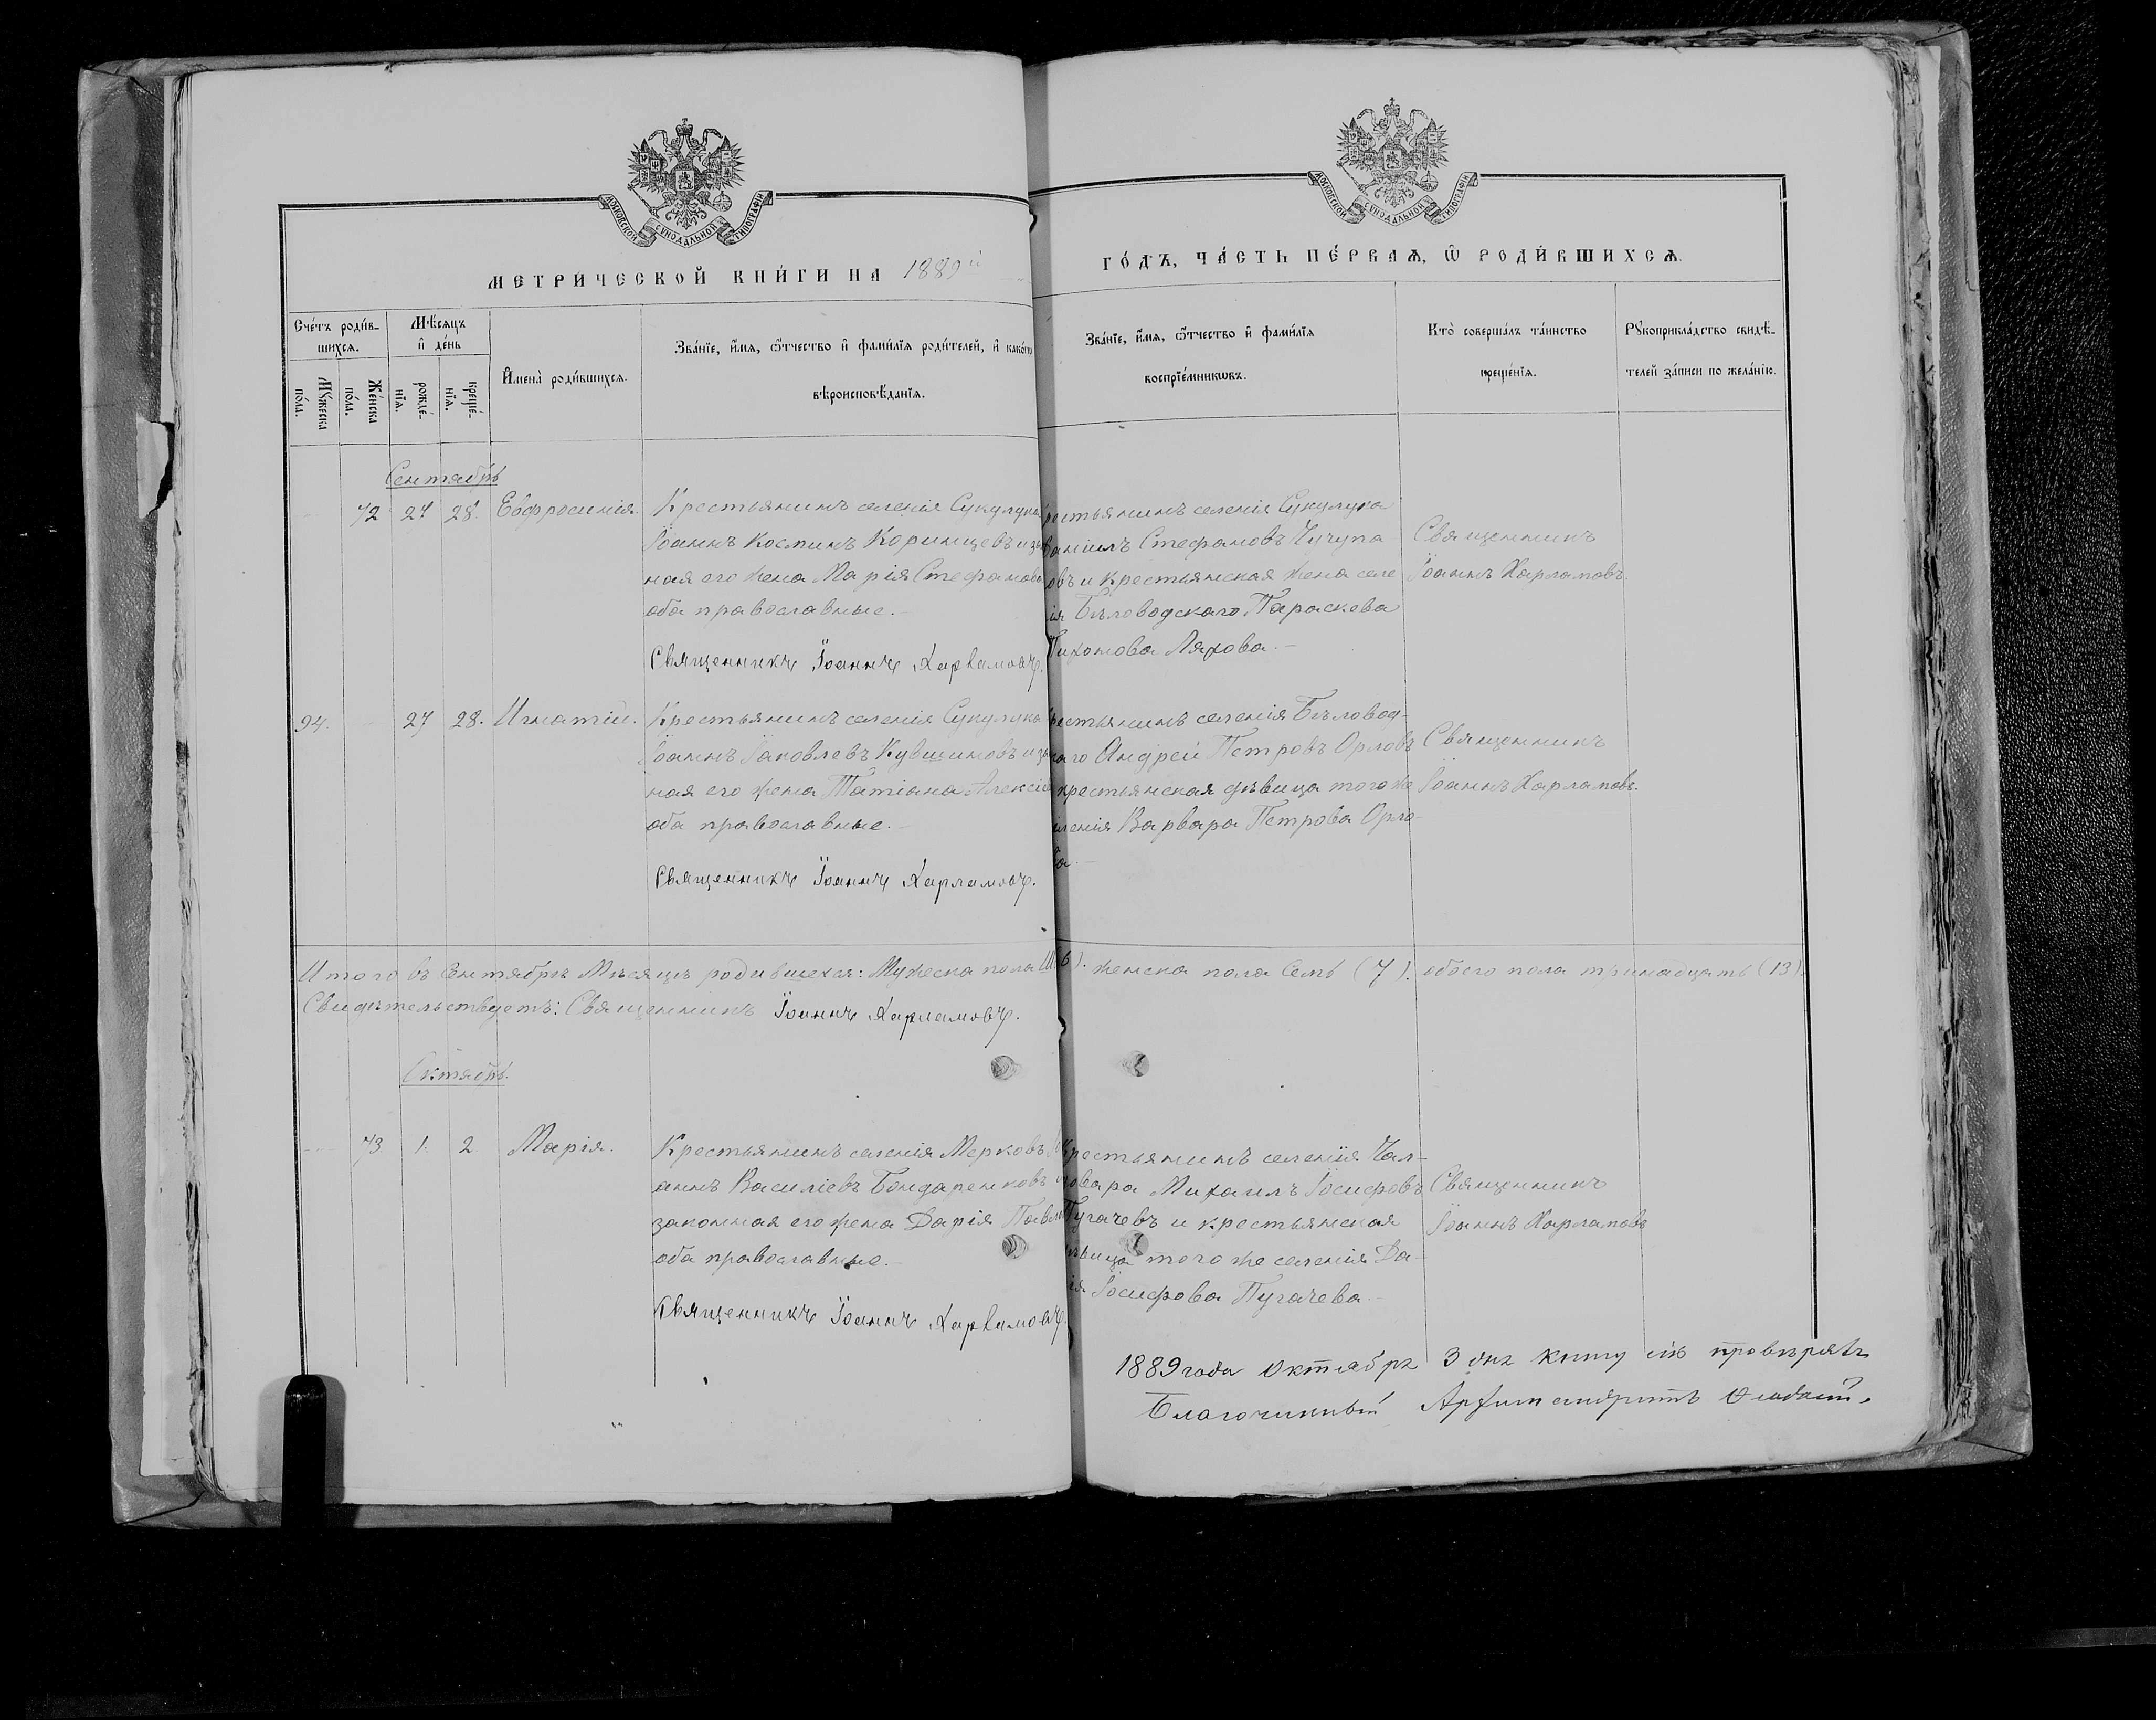 МОСКОВСКОЙ СѴНОДАЛЬНОЙ ТИПОГРАФІИ
МОСКОВСКОЙ СѴНОДАЛЬНОЙ ТИПОГРАФІИ
МЕТРИ́ЧЕСКОЙ КНИ́ГИ НА 1889й
ГО́ДЪ, ЧА́СТЬ ПЕ́РВАѦ, Ѿ РОДИ́ВШИХСѦ.
Сче́тъ роди́в-
шихсѧ.
Мꙋ́жеска по́ла.
Же́нска по́ла.
Мѣ́сѧцъ
и҆ де́нь
рожде́-
нїѧ.
креще́-
нїѧ.
И҆мена̀ роди́вшихсѧ.
Зва́нїе, и҆́мѧ, ѻ҆́тчество и҆ фами́лїѧ роди́телей, и҆ како́гѡ
вѣроисповѣ́данїѧ.
Зва́нїе, и҆́мѧ, ѻ҆́тчество и҆ фами́лїѧ
воспрїе́мникѡвъ.
Кто̀ соверша́лъ та́инство
креще́нїѧ.
Рꙋкоприкла́дство свидѣ́-
телей за́писи по жела́нїю.
Сентябрь
72 27 28. Евфросинія.
Крестьянинъ селенія Сукулука
Іоаннъ Косминъ Коринцевъ и зак
ная его жена Марія Стефанова
оба православные.
Священникъ Іоаннъ Харламовъ.
рестьянинъ селенія Сукулука
Даніилъ Стефановъ Чучупа
овъ и крестьянская жена селе
ія Бѣловодскаго Параскева
Тихонова Ляхова.
Священникъ
Іоаннъ Харламовъ.
94. 27 28. Игнатій.
Крестьянинъ селенія Сукулука
Іоаннъ Іаковлевъ Кувшиновъ и зак
ная его жена Татіана Алексіев
оба православные.
Священникъ Іоаннъ Харламовъ.
рестьянинъ селенія Бѣловод-
каго Андрей Петровъ Орловъ
крестьянская дѣвица того же
еленія Варвара Петрова Орло-
ва.
Священникъ
Іоаннъ Харламовъ.
Итого въ Сентябрѣ Мѣсяцѣ родившехся: Мужеска пола (6). женска пола Семь (7). обоего пола тринадцать (13).
Свидѣтельствуетъ: Священникъ Іоаннъ Харламовъ.
Октябрь.
73 1. 2. Марія.
Крестьянинъ селенія Мерковъ
аннъ Василіевъ Бондаренковъ и
законная его жена Дарія Павл
оба православные.
Священникъ Іоаннъ Харламовъ.
Крестьянинъ селенія Чал-
довара Михаилъ Іосифовъ
Пугачевъ и крестьянская
ѣвица того же селенія Да-
ія Іосифова Пугачева.
Священникъ
Іоаннъ Харламовъ
1889 года Октября 3 дня книгу сію провѣрялъ
Благочинный Архимандритъ